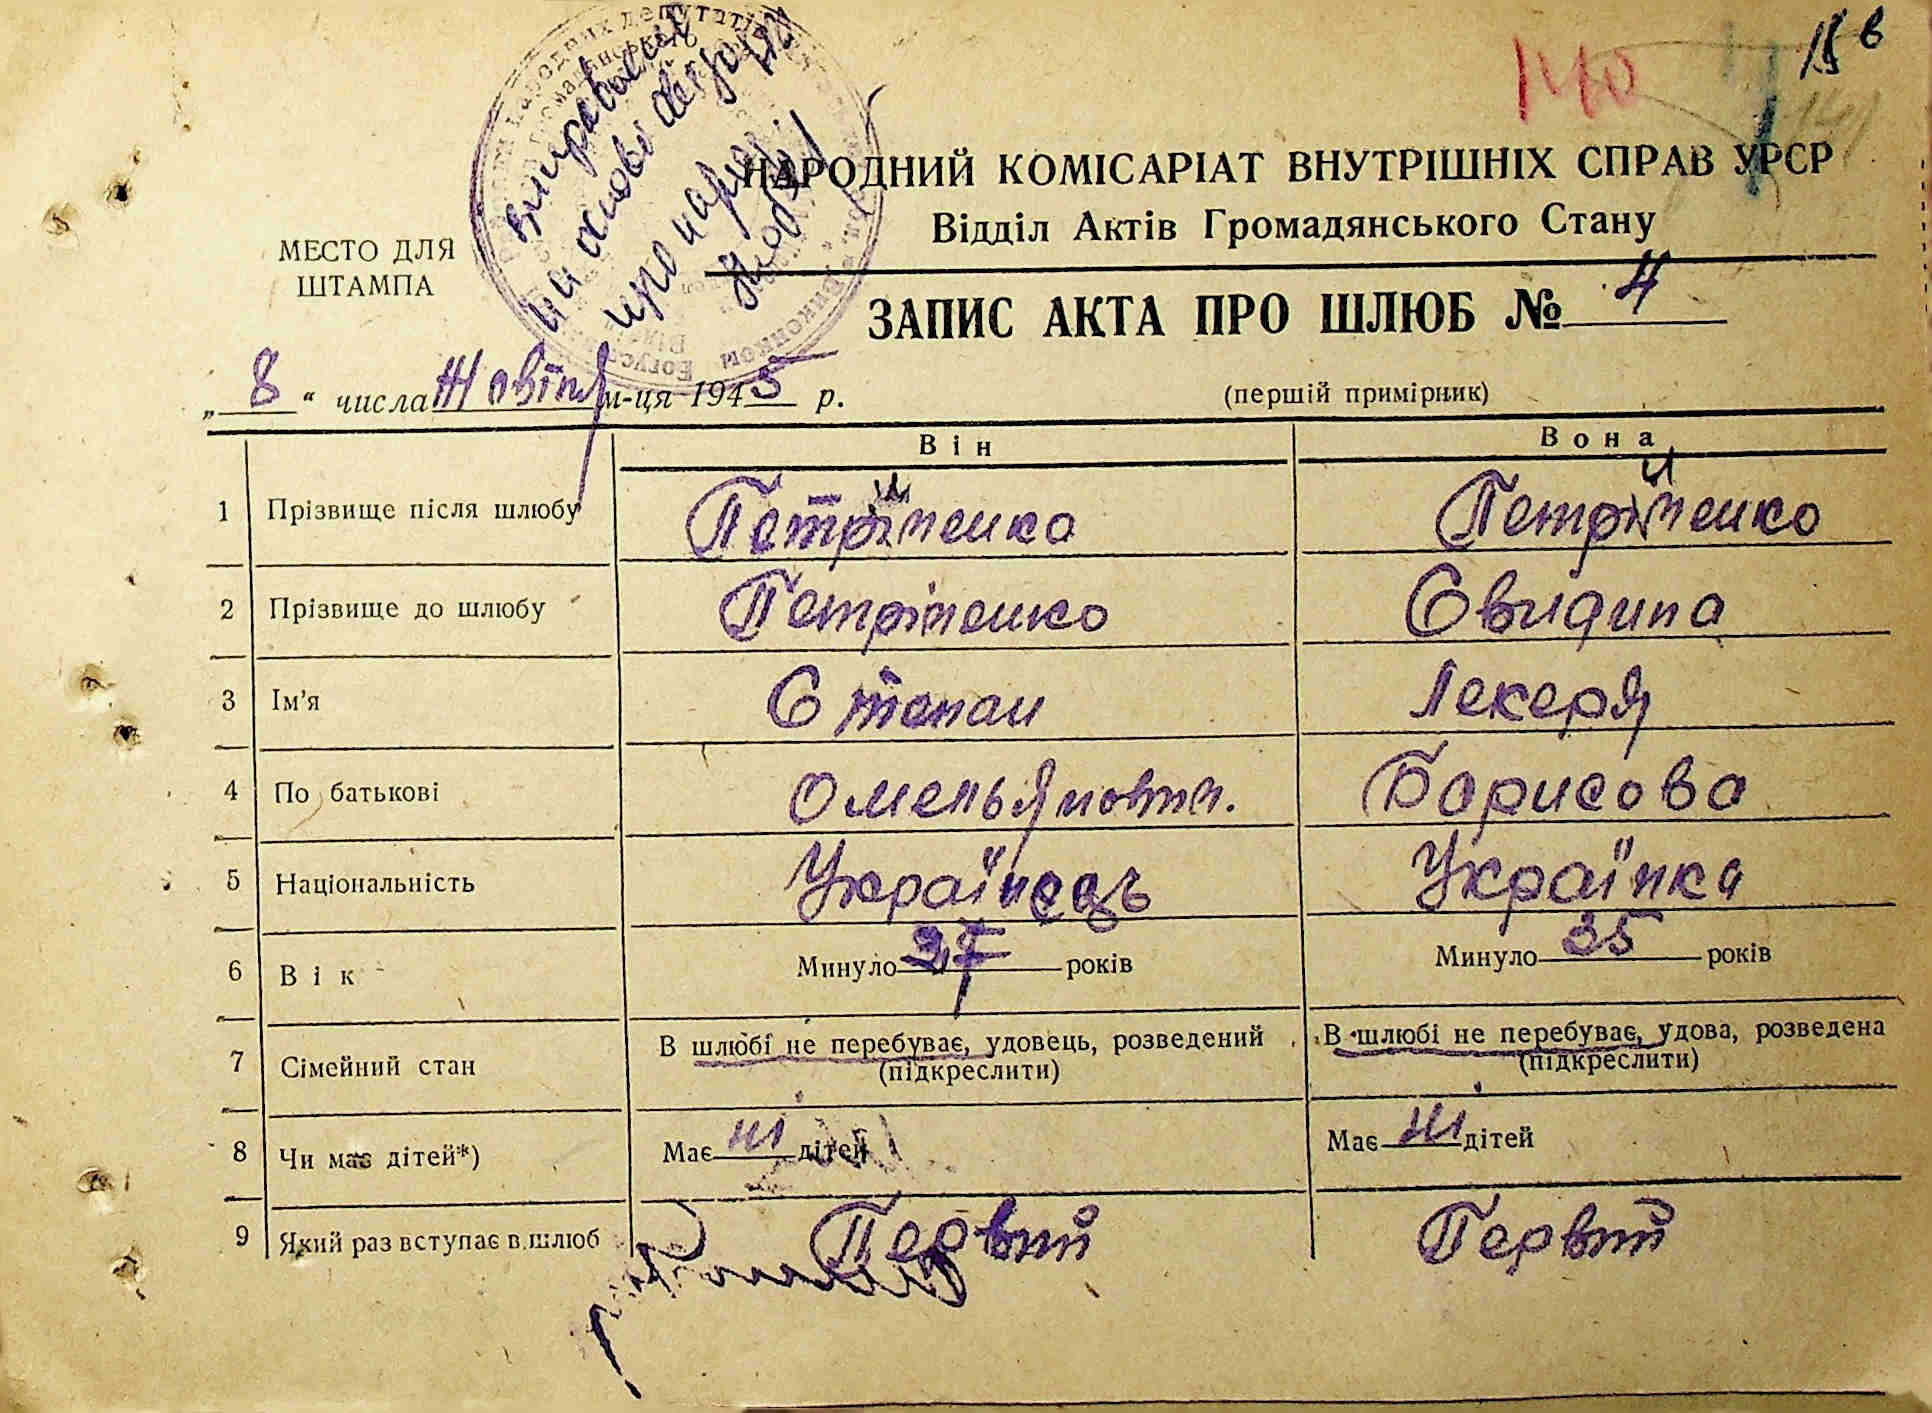 140
15 в
НАРОДНИЙ КОМІСАРІАТ ВНУТРІШНІХ СПРАВ УРСР
Відділ Актів Громадянського Стану
МЕСТО ДЛЯ
ШТАМПА
Виправлений
на основі
про народ.
ЗАПИС АКТА ПРО ШЛЮБ № 4
„ 8 “ числа Жовтня м-ця 1945 р.
(перший примірник)
Він Вона
1 Прізвище після шлюбу Петриченко Петриченко
2 Прізвище до шлюбу Петріченко Свидина
3 Ім'я Степан Лекеря
4 По батькові Омельянович. Борисова
5 Національність Українець Українка
6 Вік Минуло 27 років Минуло 35 років
7 Сімейний стан В шлюбі не перебуває, удовець, розведений В шлюбі не перебуває, удова, розведена
(підкреслити) (підкреслити)
8 Чи має дітей*) Має ні дітей Має ні дітей
9 Який раз вступає в шлюб Первий Первий